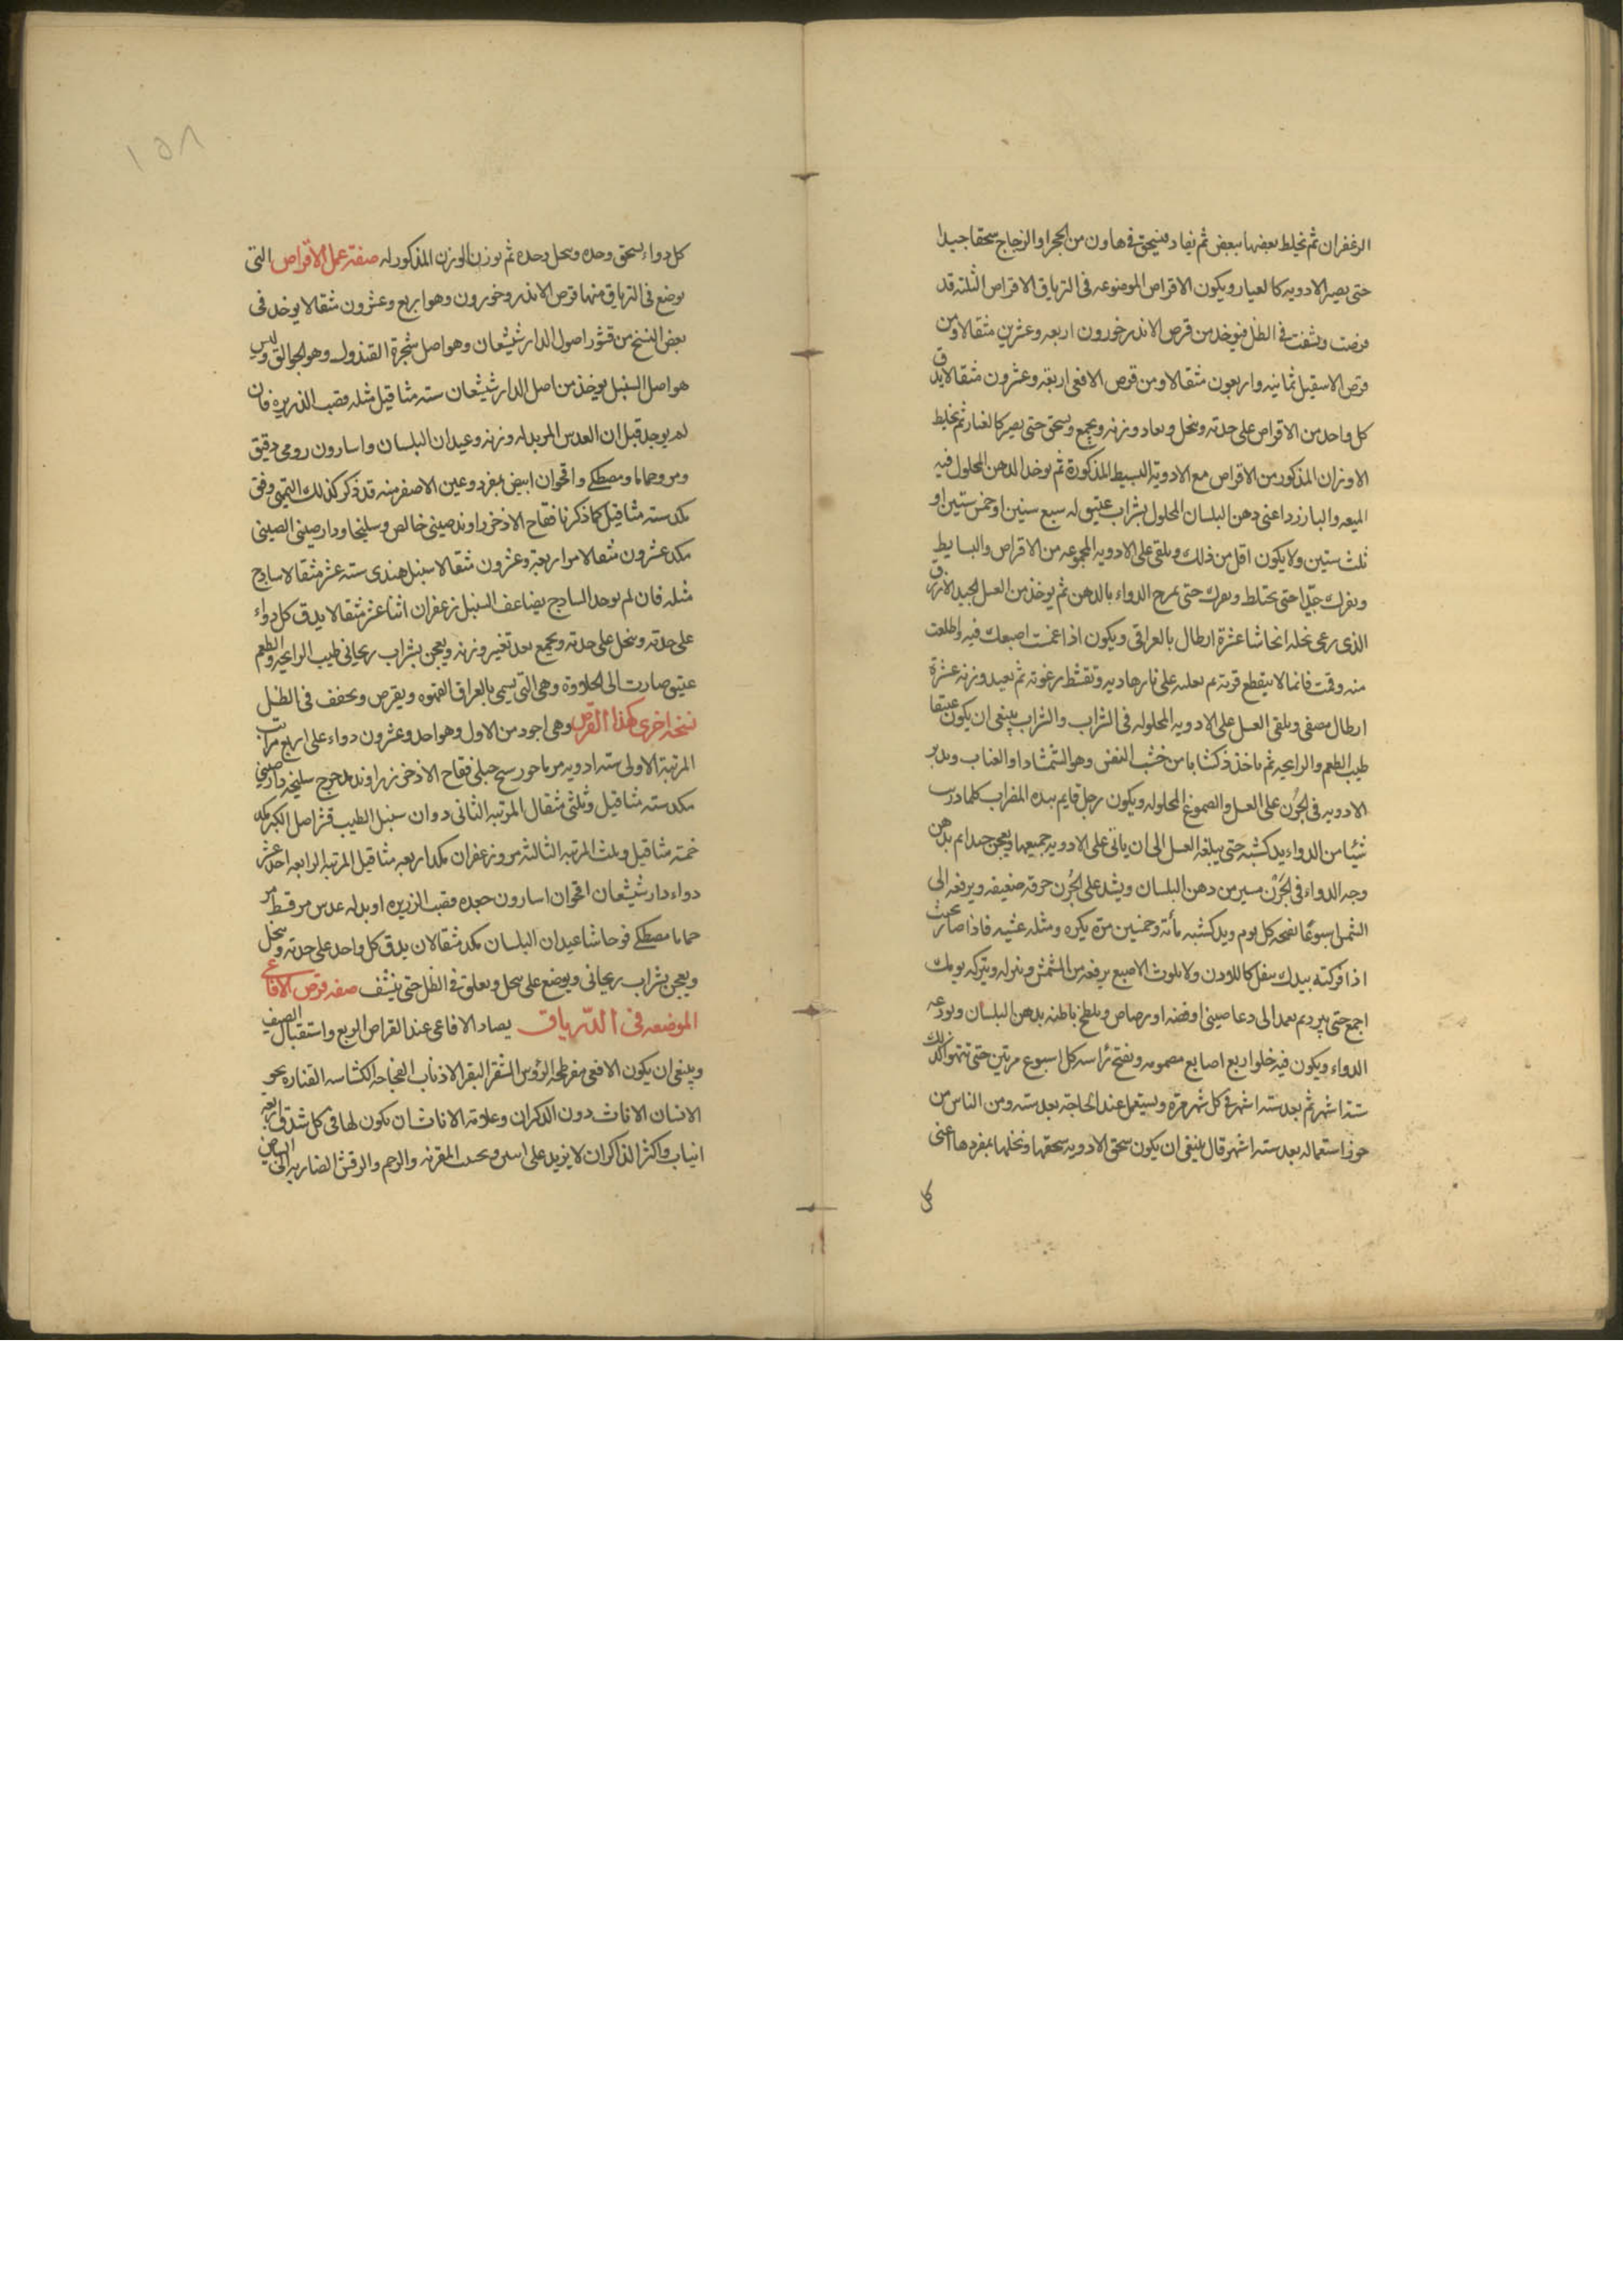 الزغفران ثم تخلط بعضها ببعض ثم يعاد فيسحق في هاون من الحجر او الزجاج سحقا جيدا
حتى يصير الادويه كالغبار ويكون الاقراص الموضوعه في الترياق الاقراص الثلثه قد
قرصت ونشفت في الظل فيوخد من قرص الاندرخورون اربعه وعشرين مثقالا ومن
قرص الاسقيل ثمانيه واربعون مثقالا ومن قرص الافعى اربعة وعشرون مثقالا يدق
كل واحد من الاقراص على حدته وينخل ويعاد وزنه ويجمع ويسحق حتى يصير كالغبار ثم يخلط
الاوزان المذكور من الاقراص مع الادوية البسيط المذكورة ثم يوخد الدهن المحلول فيه
الميعه والبارزد اعنى دهن البلسان المحلول بشراب عتيق له سبع سنين او خمس سنين او
ثلث سنين ولا يكون اقل من ذلك ويلقى على الادويه المجموعه من الاقراص والبسايط
ويفرك جيّدا حتى يختلط ويعرك حتى يمرح الدواء بالدهن ثم يوخذ من العسل الجيد الازرق
الذى رعى نحله الحاشا عشرة ارطال بالعراقى ويكون اذا غمست اصبعك فيه واطلعت
منه وقمت قائما لا ينقطع ثم يغليه على نار هاديه وتقشط رغوته ثم يعيد وزنه عشرة
ارطال مصفى ويلقى العسل على الادويه المحلوله في الشراب والشراب ينبغى ان يكون عتيقا
طيب الطعم والرايحه ثم ياخذ من خشب البقس وهو الشمشاد او العناب ويدير
الادويه في الجُرن على العسل والصموغ المحلوله ويكون رجل قايم بيده المضراب كلما درب
شيئا من الدواء يدكشبه حتى يبلغه العسل الى ان ياتى على الادويه جميعها ويعجن جيدا ثم يدهن
وجه الدواء في الجُرن بيسير من دهن البلسان ويشد على الجُرن خرقه ضعيفه ويرفعه الى
الشمس اسبوعًا تفتحه كل يوم ويدكشبه مأته وخمسين مرّة بكره ومثله عشيه فاذا صار بحيث
اذا فركته بيدك ينفرك كاللادن ولا يلوث الاصبع يرفعه من الشمس وينزله ويتركه يومك
اجمع حتى يبرد ثم يعمد الى دعا صينى او فضه او رصاص ويلطخ باطنه بدهن البلسان ويودعه
الدواء ويكون فيه خلو اربع اصابع مضمومه ونفتح رأسه كل اسبوع مرتين حتى تنتهى كذلك
ستة اشهر ثم بعد سته اشهر في كل شهر مرّة ويستعمل عند الحاجة بعد سته ومن الناس من
جوز استعماله بعد سته اشهر قال ينبغى ان يكون سحق الادويه سحقها ونخلها بمفردها اعنى
كل
١٥٨
كل دواء يسحق وحده وينخل وحده ثم يوزن الوزن المذكور له صفة عمل الاقراص التى
يوضع في الترياق منها قرص الاندروخورون وهو اربع وعشرون مثقالا يوخد في
بعض النسخ من قشور اصول الدارشيشعان وهو اصل شجرة القندول وهو الجوالق وليس
هو اصل السنبل يوخذ من اصل الدارشيشعان سته مثاقيل مثله قصب الذريره فان
لم يوجد قيل ان العدس المر بدله وزنه وعيدان البلسان واسارون رومى دقيق
ومرو حماما ومصطكى واقحوان ابيض بمفرده وعين الاصفر منه قد ذكر كذلك التميمى وفق
مكد سته مثاقيل كما ذكرنا فقاح الاذخر راوند صينى خالص وسليخا ودارصينى الصينى
مكد عشرون مثقالا مر اربعة وعشرون مثقالا سنبل هندى سته عشر مثقالا ساذج
مثله فان لم يوجد الساذج يضاعف السنبل زعفران اثنا عشر مثقالا يدق كل دواء
على حدته وينخل على حدته ويجمع بعد تغيير وزنه ويعجن بشراب ريحانى طيب الرايحه والطعم
عتيق صارت الى الحلاوة وهى التى يسمى بالعراق القهوه ويقرص ويجفف في الظل
نسخه اخرى لهذا القرص وهى اجود من الاول وهو احد وعشرون دواء على اربع مراتب
المرتبة الاولى سته ادويه مرماحور شيح جبلى فقاح الاذخر زراوند مدحرج سليخه دارصينى
مكد سته مثاقيل وثلثى مثقال المرتبه الثانى دوان سنبل الطيب قشر اصل الكبر مكد
خمسة مثاقيل وثلث المرتبه الثالثه مر وزعفران مكد اربعه مثاقيل المرتبه الرابعه احد عشر
دواء دارشيشعان اقحوان اسارون جعده قصب الزريره او بدله عدس مر قسط مر
حماما مصطكى فو حاشا عيدان البلسان مكد مثقالان يدق كل واحد على حدته وينخل
ويعجن بشراب ريحانى ويوضع على منخل ويعلق في الظل حتى ينشف صفه قرص الافاعى
الموضعه في الترياق يصاد الافاعى عند القراض الربيع واستقبال الصيف
وينبغى ان يكون الافعى مفرطحه الرؤس الشقر البقر الاذناب
الانسان الاناث دون الذكران وعلامة الاناث ان يكون لها في كل شدق اربعه
انياب واكثر الذاكران لا يزيد على اسس ويجتنب المقرنه والرحم والرقش الضاربه الى البياض